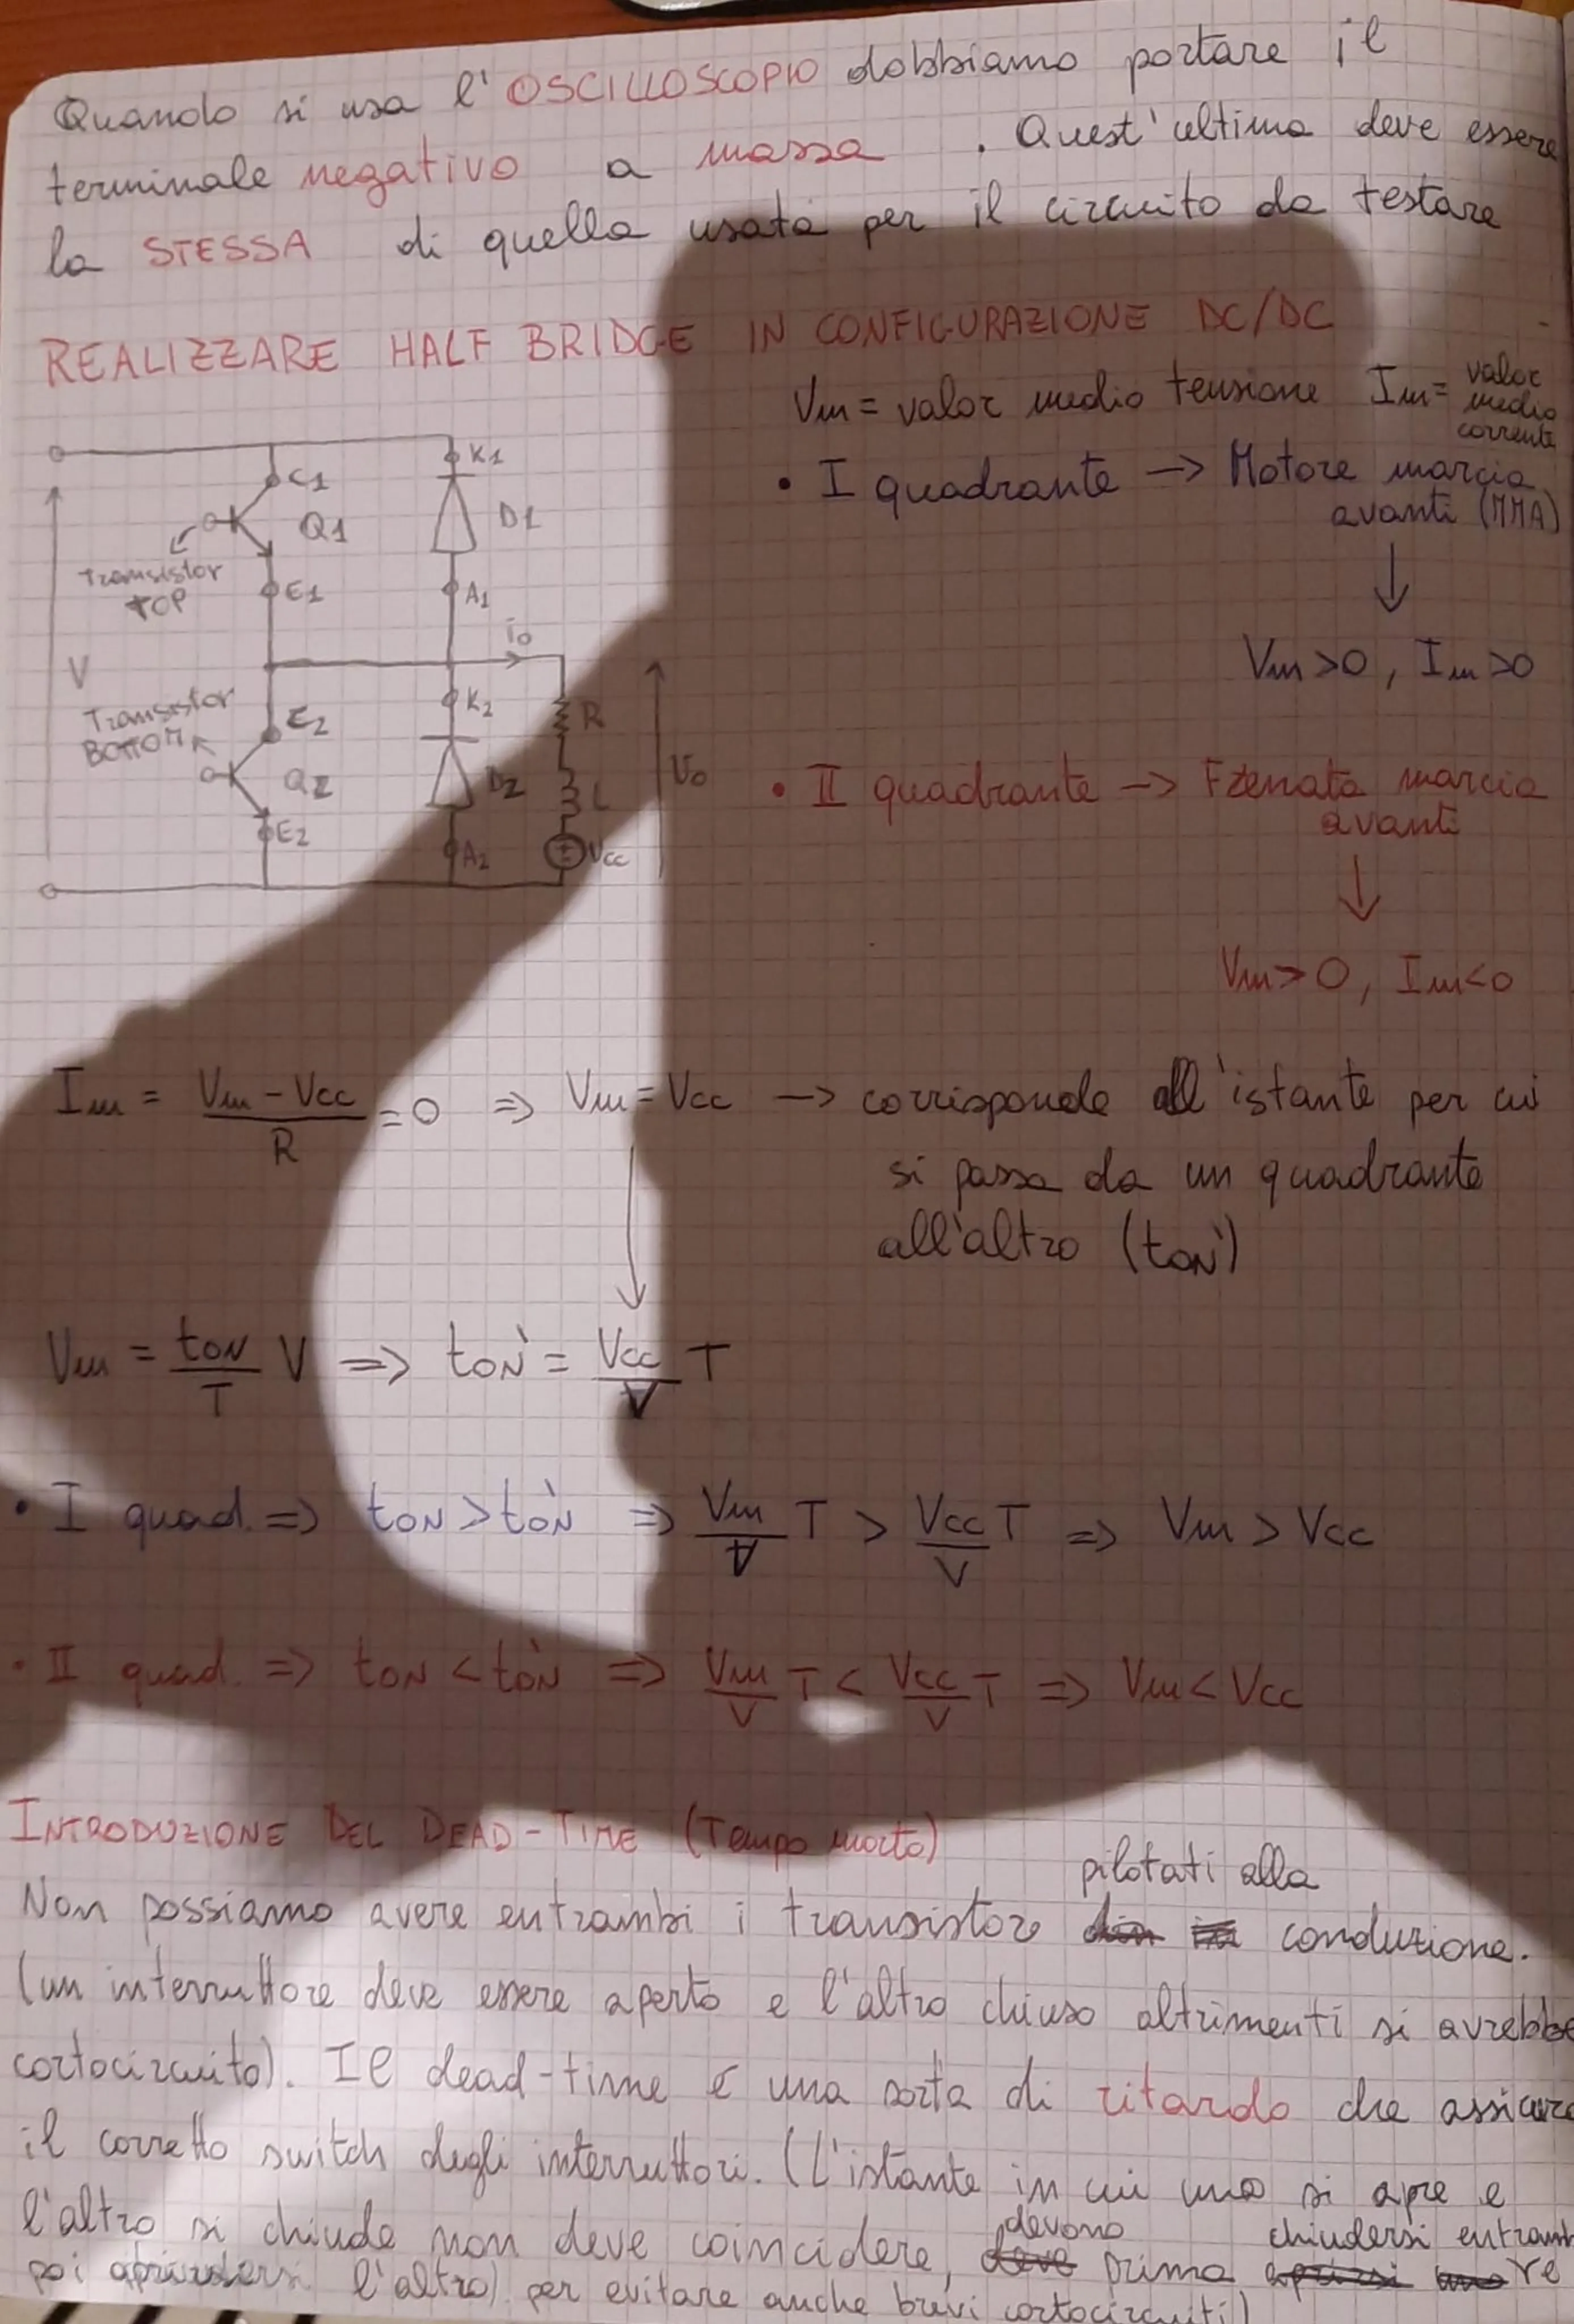 Quando si usa l'OSCILLOSCOPIO dobbiamo portare il
terminale negativo a massa . Quest'ultima deve essere
la STESSA di quella usata per il circuito da testare
REALIZZARE HALF BRIDGE IN CONFIGURAZIONE DC/DC
Vm = valor medio tensione Im = valor medio corrente
C1
Q1
Transistor
TOP
E1
K1
D1
A1
io
V
Transistor
BOTTOM
E2
Q2
E2
K2
D2
A2
R
L
Vcc
Vo
• I quadrante -> Motore marcia
avanti (MMA)
↓
Vm > 0 , Im > 0
• II quadrante -> Frenata marcia
avanti
↓
Vm > 0 , Im < 0
Im = (Vm - Vcc)/R = 0 => Vm = Vcc -> corrisponde all'istante per cui
si passa da un quadrante
all'altro (tON')
Vm = tON/T V => tON' = Vcc/V T
• I quad. => tON > tON' => Vm/V T > Vcc/V T => Vm > Vcc
• II quad. => tON < tON' => Vm/V T < Vcc/V T => Vm < Vcc
INTRODUZIONE DEL DEAD-TIME (Tempo morto)
Non possiamo avere entrambi i transistore pilotati alla conduzione.
(un interruttore deve essere aperto e l'altro chiuso altrimenti si avrebbe
cortocircuito). Il dead-time è una sorta di ritardo che assicura
il corretto switch degli interruttori. (L'istante in cui uno si apre e
l'altro si chiude non deve coincidere, devono prima chiudersi
poi l'altro) per evitare anche brevi cortocircuiti)